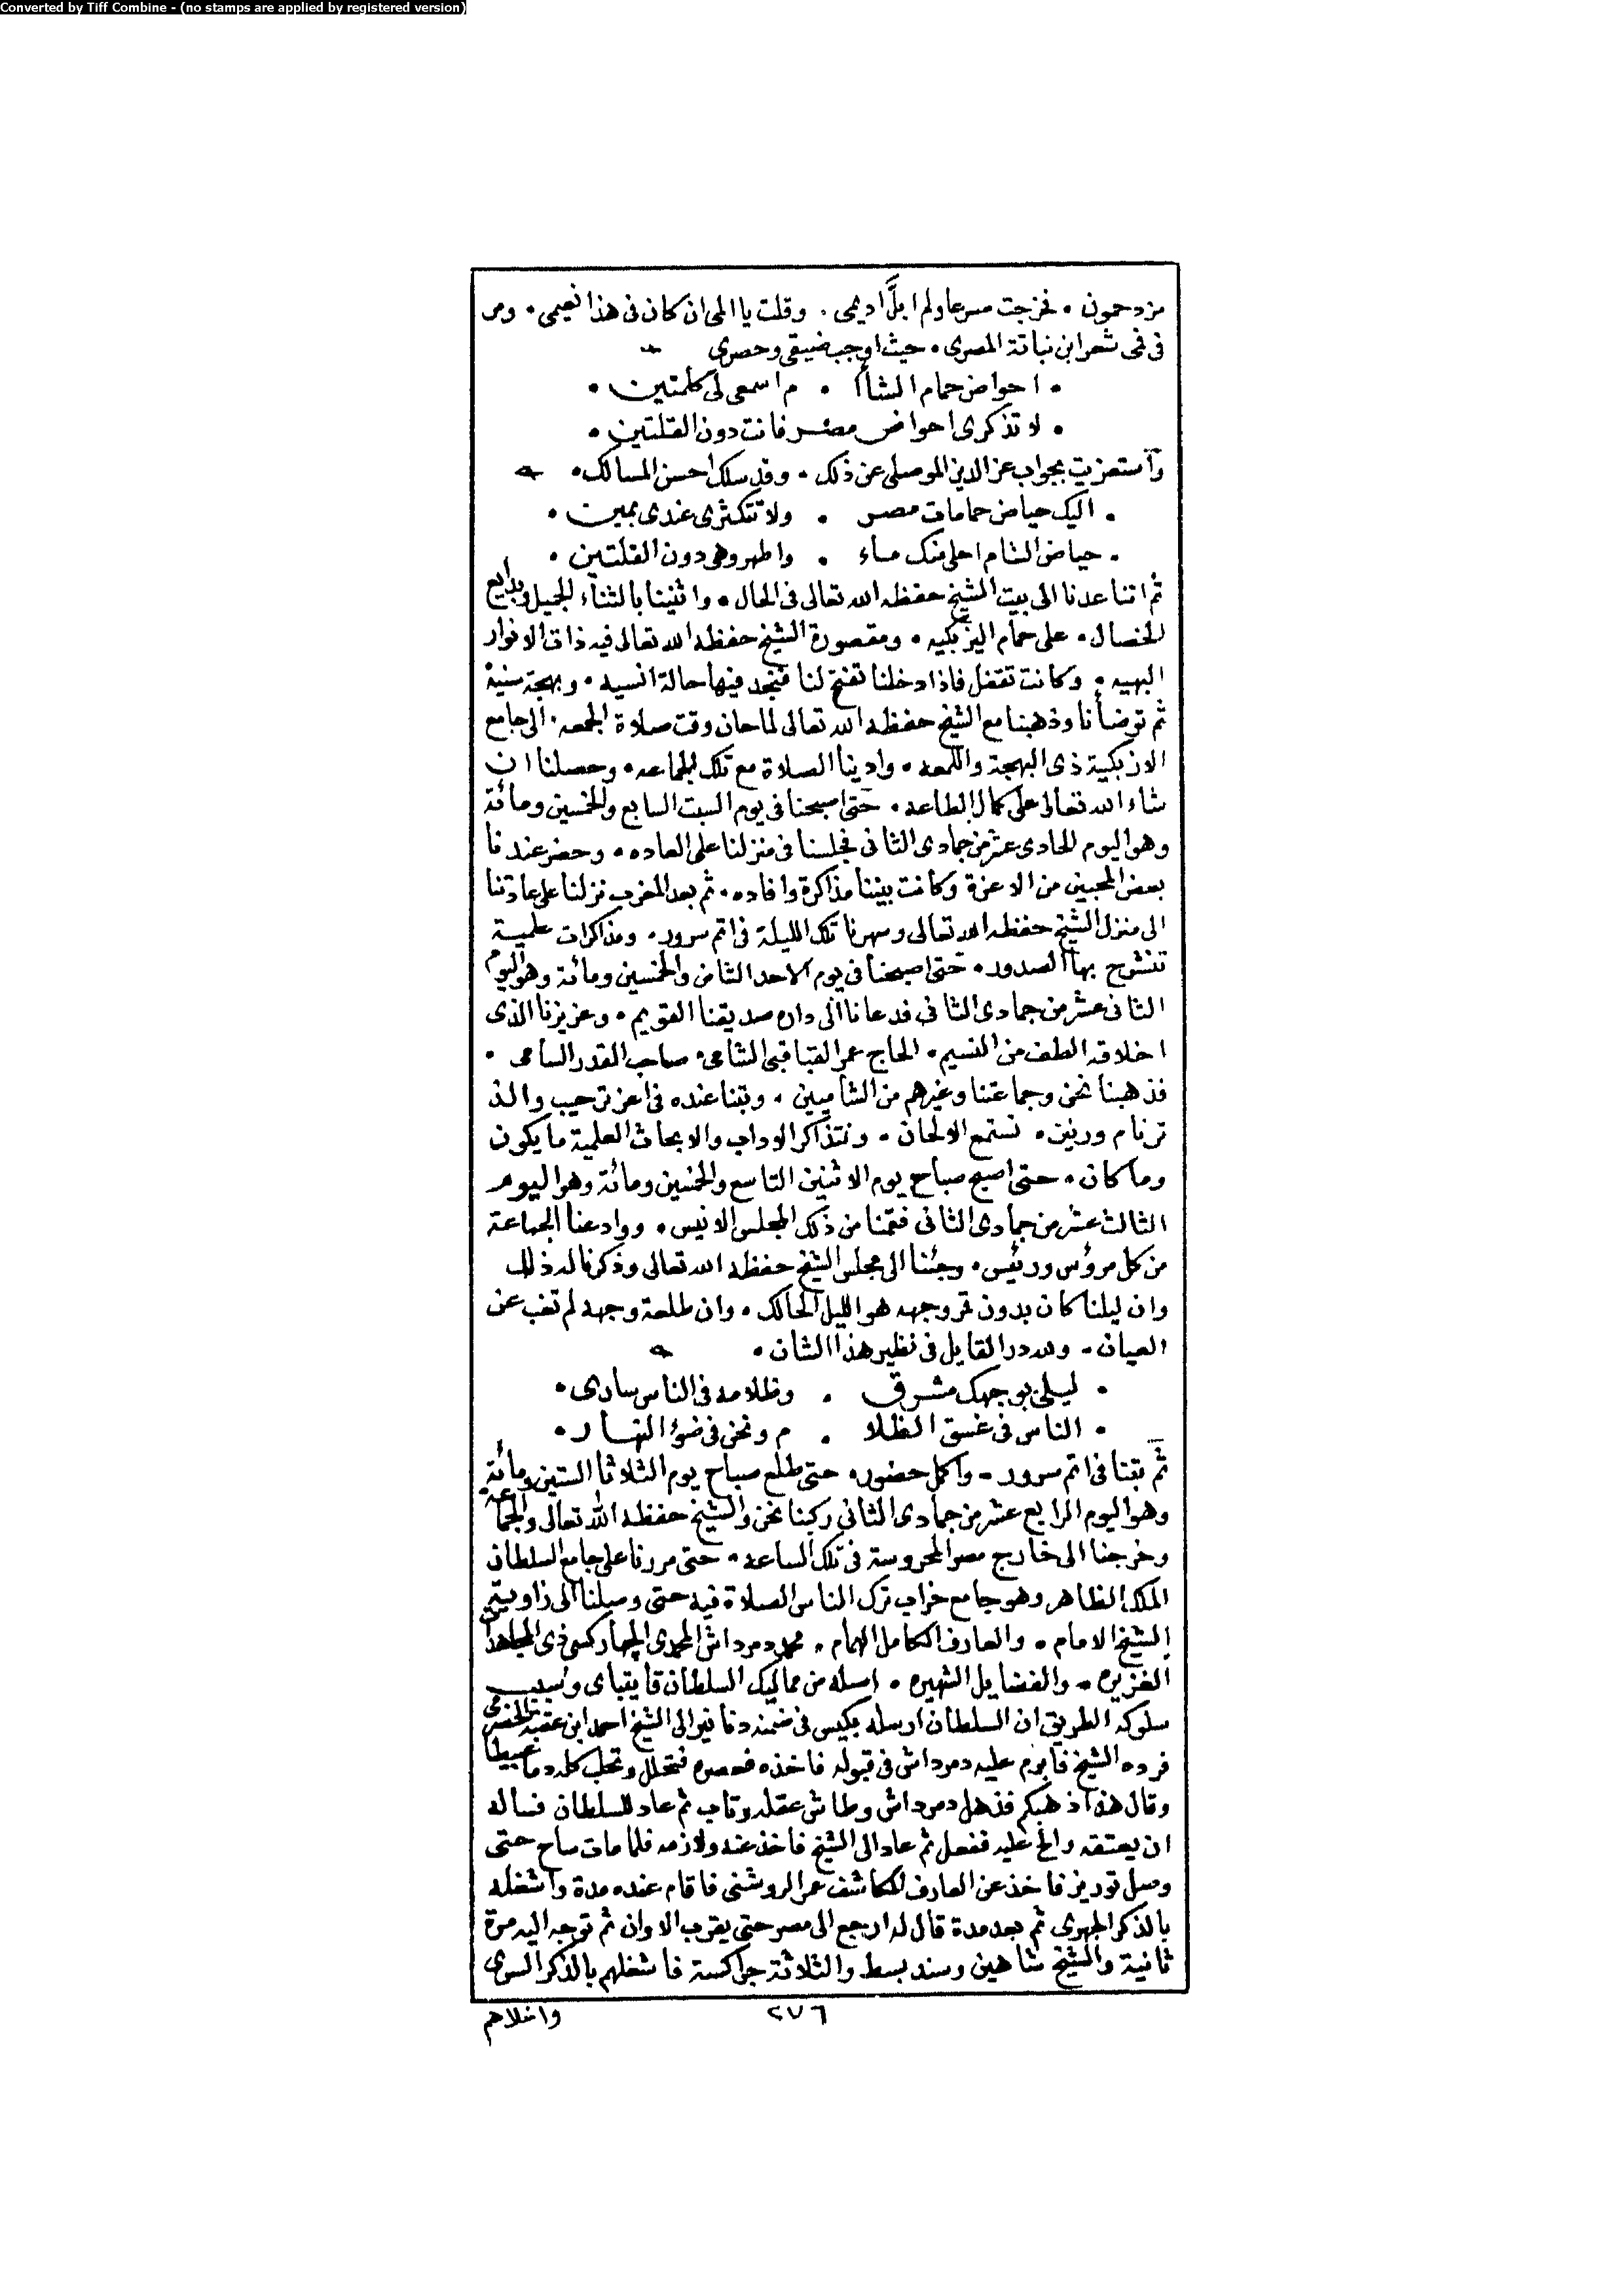 Converted by Tiff Combine - (no stamps are applied by registered version)
مزدحمون • فخرجت مسرعا ولم ابلّ اديمى • وقلت يا الهى ان كان فى هذا نعيمى • ومر
فى فمى شعر ابن نباتة المصرى • حيث اوجب ضيقى وحصرى
• احواض حمام الشآ • م اسمعى لى كلمتين •
• لا تذكرى احواض مصر فانت دون القلتين •
وآستعزيت بجواب عز الدين الموصلى عن ذلك • وقد سلك احسن المسالك •
• اليك حياض حمامات مصر • ولا تتكثرى عندى بمين •
• حياض الشام احلى منك مآء • واطهر وهى دون القلتين •
ثم اننا عدنا الى بيت الشيخ حفظه الله تعالى فى الحال • واثنينا بالثنآء الجميل وبدايع
الخصال • على حمام اليزبكيه • ومقصورة الشيخ حفظه الله تعالى فيه ذات الانوار
البهيه • وكانت تقفل فاذا دخلنا تفتح لنا فنجد فيها حالة انسيه • وبهجة سنية
ثم توضأنا وذهبنا مع الشيخ حفظه الله تعالى لما حان وقت صلاة الجمعه • الى جامع
الازبكية ذى البهجة واللمعه • وادينا الصلاة مع تلك الجماعه • وحصلنا ان
شاء الله تعالى على كمال الطاعه • حتى اصبحنا فى يوم السبت السابع والخمسين ومائة
وهو اليوم الحادى عشر من جمادى الثانى فجلسنا فى منزلنا على العاده • وحضر عندنا
بعض المحبين من الاعزة وكانت بيننا مذاكرة وافاده • ثم بعد المغرب نزلنا على عادتنا
الى منزل الشيخ حفظه الله تعالى وسهرنا تلك الليلة فى اتم سرور • ومذاكرات علمية
تنشرح بها الصدور • حتى اصبحنا فى يوم الاحد الثامن والخمسين ومائة وهو اليوم
الثانى عشر من جمادى الثانى فدعانا الى داره صديقنا القويم • وعزيزنا الذى
اخلاقه الطف من النسيم • الحاج عمر القباقبى الشامى • صاحب القدر السامى •
فذهبنا نحن وجماعتنا وغيرهم من الشاميين • وبتنا عنده فى اعز ترحيب والذ
ترنام ورنين • نستمع الالحان • ونتذاكر الاداب والابحاث العلمية ما يكون
وما كان • حتى اصبح صباح يوم الاثنين التاسع والخمسين ومائة وهو اليوم
الثالث عشر من جمادى الثانى فقمنا من ذلك المجلس الانيس • ووادعنا الجماعة
من كل مرؤس ورئيس • وجئنا الى مجلس الشيخ حفظه الله تعالى وذكرنا له ذلك
وان ليلنا كان بدون قمر وجهه هو الليل الحالك • وان طلعة وجهه لم تغب عن
العيان • ولله در القايل فى نظير هذا الشان •
• ليلى بوجهك مشرق • وظلامه فى الناس سارى •
• الناس فى غسق الظلا • م ونحن فى ضوء النهار •
ثم بتنا فى اتم سرور • واكمل حضور • حتى طلع صباح يوم الثلاثا الستين ومائة
وهو اليوم الرابع عشر من جمادى الثانى ركبنا نحن والشيخ حفظه الله تعالى والجماعة
وخرجنا الى خارج مصر المحروسة فى تلك الساعه • حتى مررنا على جامع السلطان
الملك الظاهر وهو جامع خراب ترك الناس الصلاة فيه حتى وصلنا الى زاوية
الشيخ الامام • والعارف الكامل الهمام • محمد دمرداش المحمدى الچهاركسى ذى المجاهدات
الغزيره • والفضايل الشهيره • اصله من مماليك السلطان قايتباى وسبب
سلوكه الطريق ان السلطان ارسله بكيس فى ضمنه دنانير الى الشيخ احمد ابن عقبة الحضرمى
فرده الشيخ فابرم عليه دمرداش فى قبوله فاخذه فعصره فتحلل وتحلب كله دما عبيطا
وقال هذا ذهبكم فذهل دمرداش وطاش عقله وتاب ثم عاد للسلطان فساله
ان يعتقه والح عليه ففعل ثم عاد الى الشيخ فاخذ عنه ولازمه فلما مات ساح حتى
وصل توريز فاخذ عن العارف الكاشف عمر الروشنى فاقام عنده مدة واشغله
بالذكر الجهرى ثم بعد مدة قال له ارجع الى مصر حتى يقرب الاوان ثم توجه اليه مرة
ثانية والشيخ شاهين وسند بسط والثلاثة جراكسة فاشغلهم بالذكر السرى
٢٧٦
واخلاهم